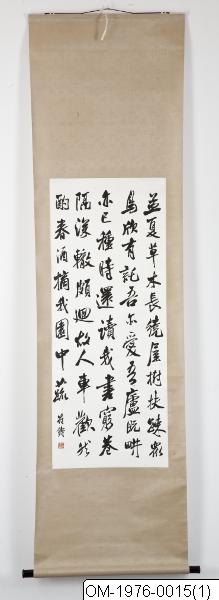 孟夏草木長繞屋樹扶疎衆
鳥欣有託吾亦愛吾廬既耕
亦已種時還讀我書窮巷
隔深轍頗迴故人車歡然
酌春酒摘我園中蔬
OM-1976-0015(1)